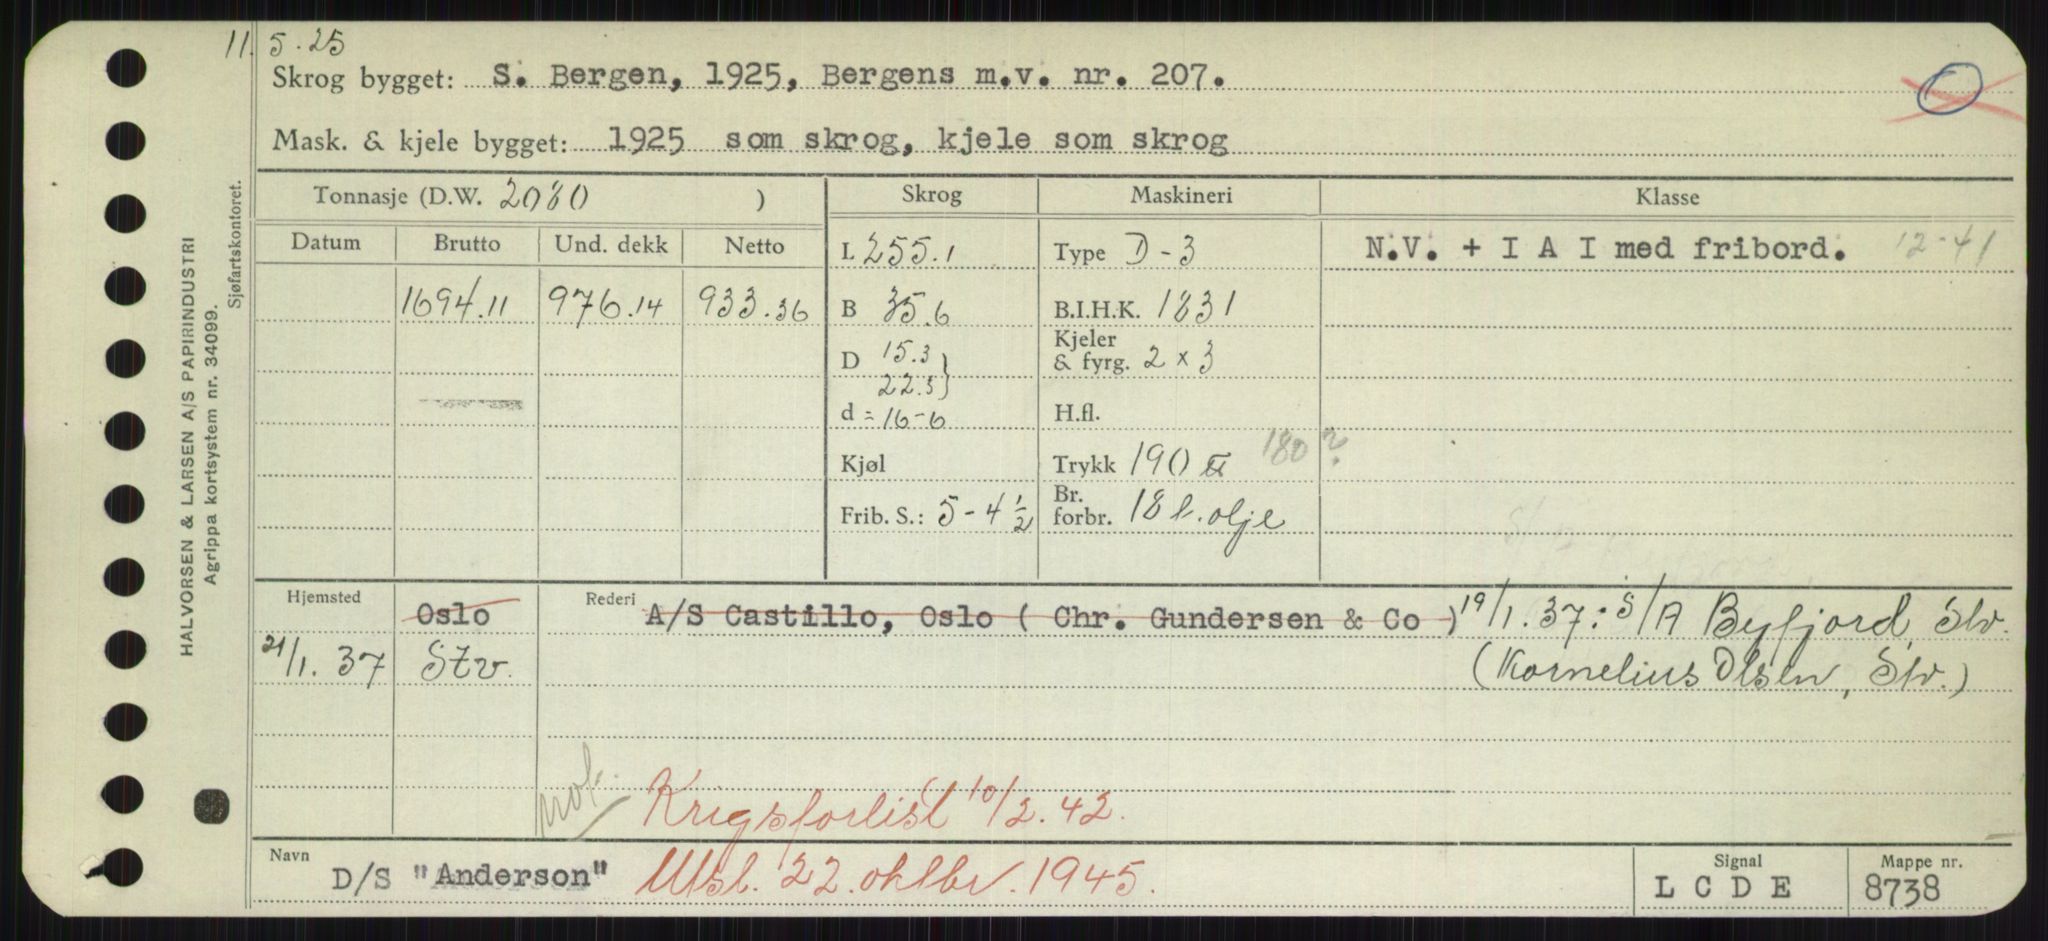 11. 5.25
Skrog bygget: S. Bergen, 1925, Bergens m.v. nr. 207.
Mask. & kjele bygget: 1925 som skrog, kjele som skrog
Tonnasje (D.W. 2080 )
Datum Brutto Und. dekk Netto
1694.11 976.14 933.36
Skrog
L 255.1
B 35.6
D 15.3
22.5
d = 16-6
Kjøl
Frib. S.: 5-4 1/2
Maskineri
Type D-3
B.I.H.K. 1831
Kjeler
& fyrg. 2 x 3
H.fl.
Trykk 190 180?
Br.
forbr. 18 t. olje
Klasse
N.V. + I A I med fribord. 12-41
Hjemsted Oslo
21/1.37 Stv.
Rederi A/S Castillo, Oslo ( Chr. Gundersen & Co ) 19/1.37: S/A Byfjord, Stv.
(Kornelius Olsen, Stv.)
Krigsforlist 10/2.42.
Navn D/S "Anderson" Utsl. 22. oktbr. 1945.
Signal
L C D E
Mappe nr.
8738
HALVORSEN & LARSEN A/S PAPIRINDUSTRI
Agrippa kortsystem nr. 34099.
Sjøfartskontoret.